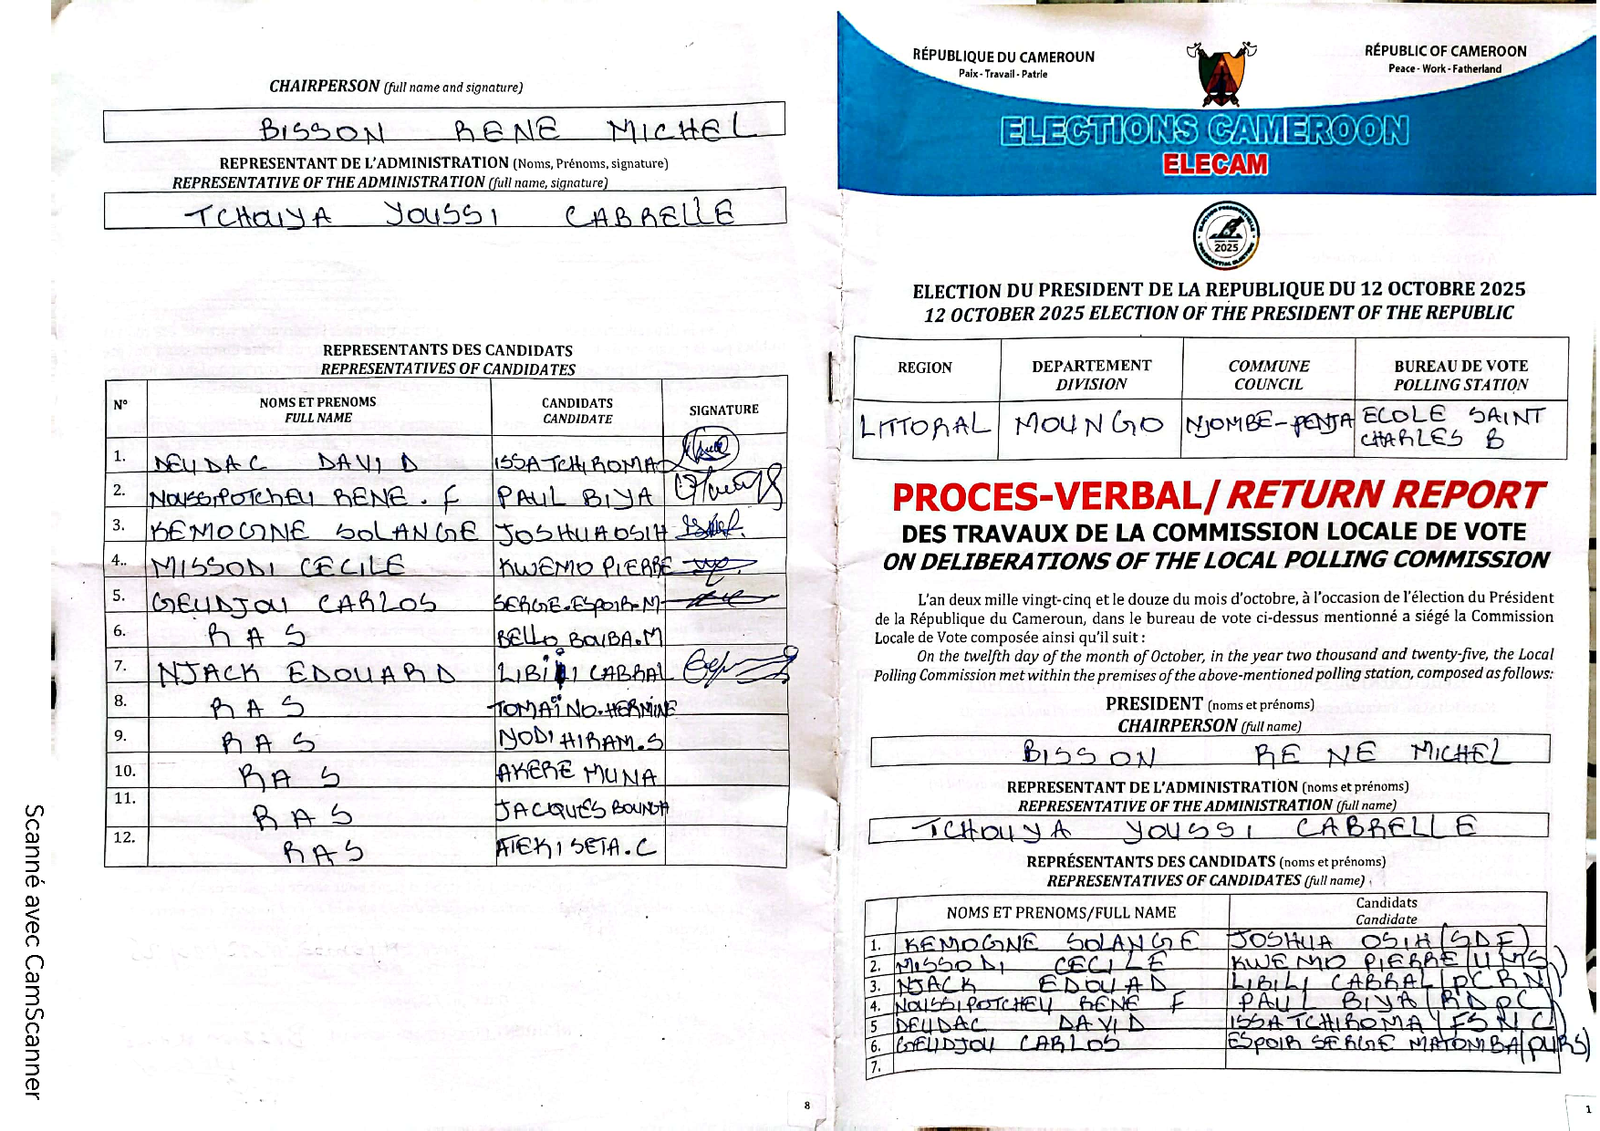 CHAIRPERSON (full name and signature)
BISSON RENE MICHEL
REPRESENTANT DE L'ADMINISTRATION (Noms, Prénoms, signature)
REPRESENTATIVE OF THE ADMINISTRATION (full name, signature)
TCHOUYA YOUSSI CABRELLE
REPRESENTANTS DES CANDIDATS
REPRESENTATIVES OF CANDIDATES
N° NOMS ET PRENOMS FULL NAME CANDIDATS CANDIDATE SIGNATURE
1. DEUDAC DAVID ISSA TCHIROMA
2. NOUSSIPOTCHEU RENE . F PAUL BIYA
3. KEMOGNE SOLANGE JOSHUA OSIH
4.. MISSODI CECILE KWEMO PIERRE
5. GEUDJOU CARLOS SERGE.ESPOIR.M
6. RAS BELLO BOUBA.M
7. NJACK EDOUARD LIBILI CABRAL
8. RAS TOMAÏNO.HERMINE
9. RAS NJODI HIRAM.S
10. RAS AKERE MUNA
11. RAS JACQUES BOUNGA
12. RAS ATEKI SETA.C
8
Scanné avec CamScanner
RÉPUBLIQUE DU CAMEROUN
Paix - Travail - Patrie
RÉPUBLIC OF CAMEROON
Peace - Work - Fatherland
ELECTIONS CAMEROON
ELECAM
ELECTION PRESIDENTIELLE
2025
PRESIDENTIAL ELECTION
ELECTION DU PRESIDENT DE LA REPUBLIQUE DU 12 OCTOBRE 2025
12 OCTOBER 2025 ELECTION OF THE PRESIDENT OF THE REPUBLIC
REGION DEPARTEMENT DIVISION COMMUNE COUNCIL BUREAU DE VOTE POLLING STATION
LITTORAL MOUNGO NJOMBE-PENJA ECOLE SAINT CHARLES B
PROCES-VERBAL/ RETURN REPORT
DES TRAVAUX DE LA COMMISSION LOCALE DE VOTE
ON DELIBERATIONS OF THE LOCAL POLLING COMMISSION
L'an deux mille vingt-cinq et le douze du mois d'octobre, à l'occasion de l'élection du Président
de la République du Cameroun, dans le bureau de vote ci-dessus mentionné a siégé la Commission
Locale de Vote composée ainsi qu'il suit :
On the twelfth day of the month of October, in the year two thousand and twenty-five, the Local
Polling Commission met within the premises of the above-mentioned polling station, composed as follows:
PRESIDENT (noms et prénoms)
CHAIRPERSON (full name)
BISSON RENE MICHEL
REPRESENTANT DE L'ADMINISTRATION (noms et prénoms)
REPRESENTATIVE OF THE ADMINISTRATION (full name)
TCHOUYA YOUSSI CABRELLE
REPRÉSENTANTS DES CANDIDATS (noms et prénoms)
REPRESENTATIVES OF CANDIDATES (full name)
NOMS ET PRENOMS/FULL NAME Candidats Candidate
1. KEMOGNE SOLANGE JOSHUA OSIH (SDF)
2. MISSODI CECILE KWEMO PIERRE (UMS)
3. NJACK EDOUAD LIBILI CABRAL (PCRN)
4. NOUSSIPOTCHEU RENE F PAUL BIYA (RDPC)
5 DEUDAC DAVID ISSA TCHIROMA (FSNC)
6. GEUDJOU CARLOS ESPOIR SERGE MATOMBA (PURS)
7.
1